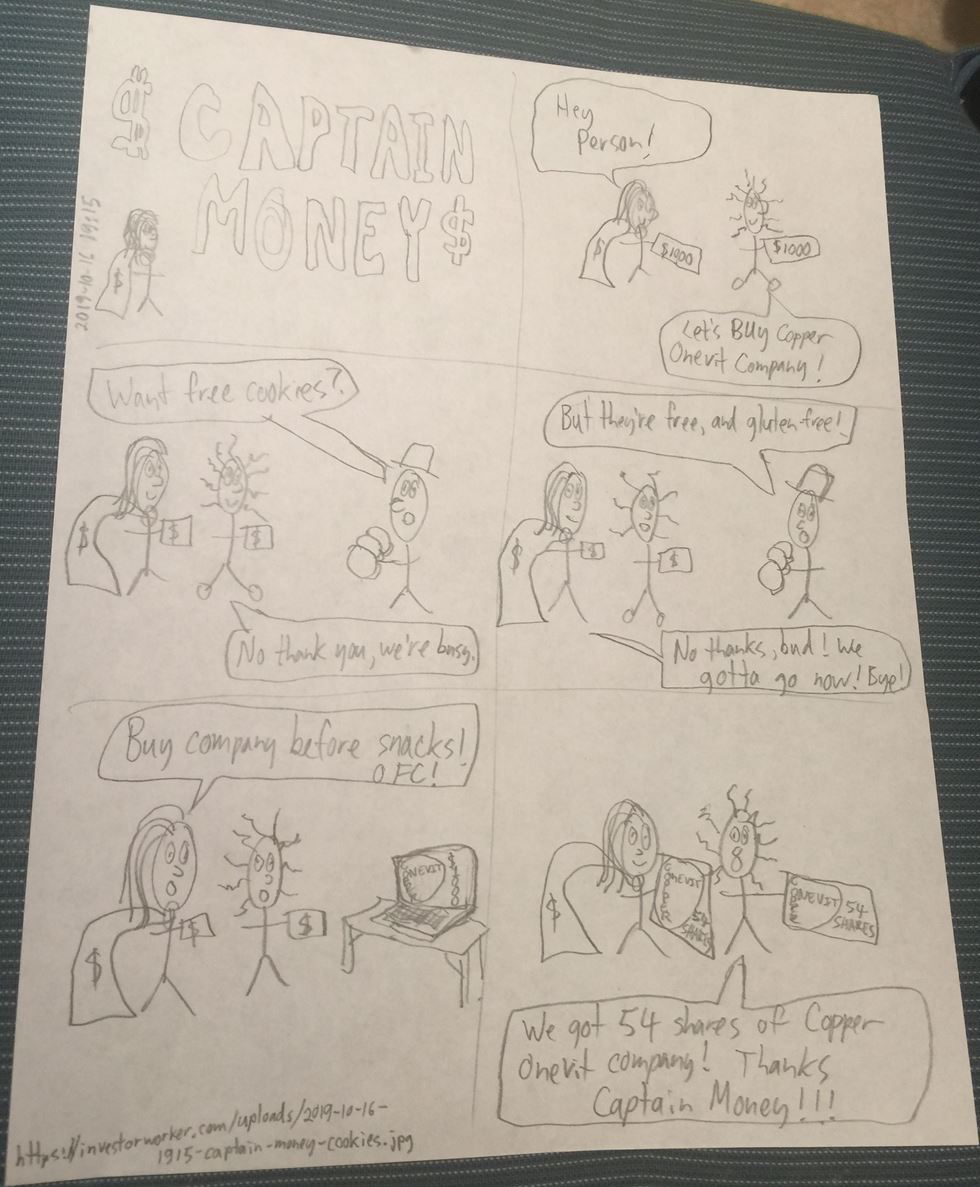 $ CAPTAIN
MONEY $
2019-10-16 19:15
$
Hey
Person!
$
$1000
$1000
Let's Buy Copper
Onevit Company!
Want free cookies?
$
$
$
No thank you, we're busy.
But they're free, and gluten-free!
$
$
$
No thanks, bud! We
gotta go now! Bye!
Buy company before snacks!
OFC!
$
$
$
COPPER
ONEVIT
$
ONEVIT
COPPER
54
SHARES
COPPER
ONEVIT 54
SHARES
We got 54 shares of Copper
Onevit company! Thanks
Captain Money!!!
https://investorworker.com/uploads/2019-10-16-
1915-captain-money-cookies.jpg